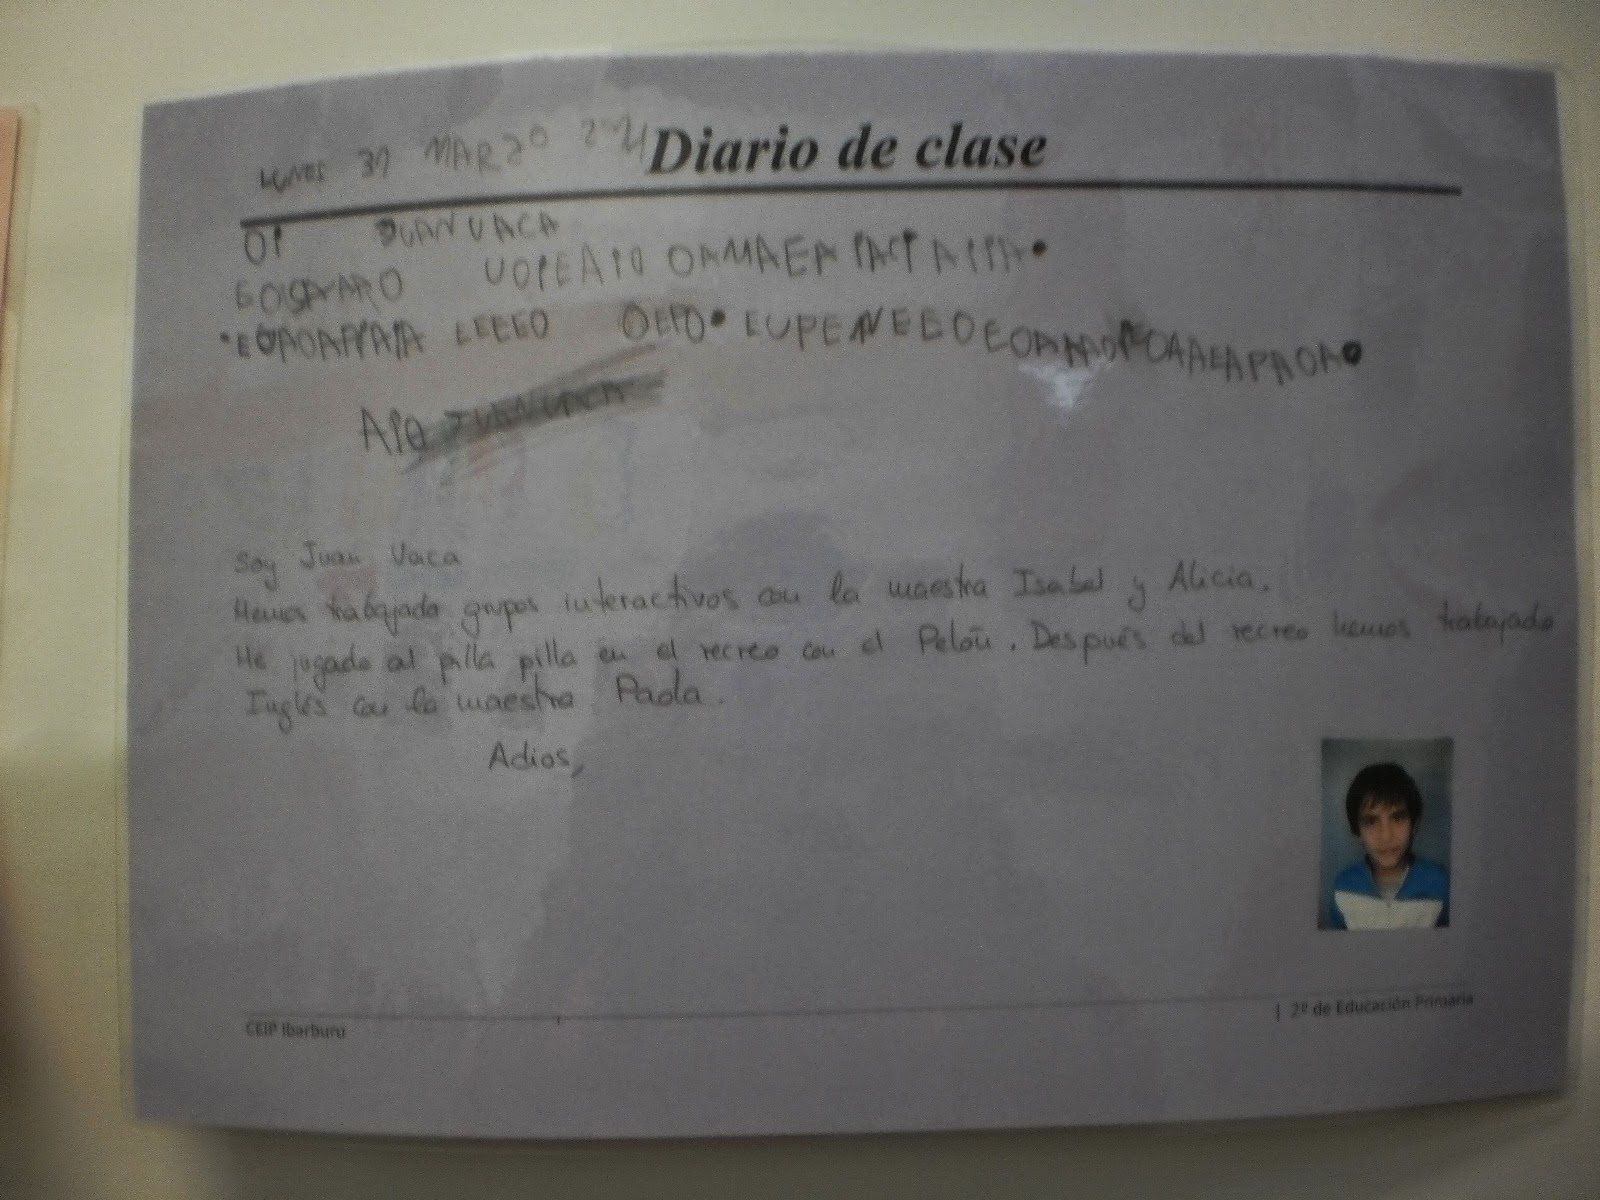 LUNES 31 MARZO
Diario de clase
OI JUAN VACA
EOSAYARO UOPEAIO OAMAEA
LEEEO OEPO. EUPENEEOE
APO JUANVACA
Soy Juan Vaca
Hemos trabajado grupos interactivos con la maestra Isabel y Alicia.
He jugado al pilla pilla en el recreo con el Pelón. Después del recreo hemos trabajado
Inglés con la maestra Paola.
Adios,
CEIP Ibarburu
| 2º de Educación Primaria